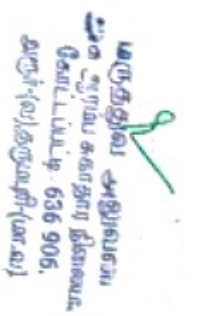 மருத்துவ அலுவலர்
அரசு ஆரம்ப சுகாதார நிலையம்,
கோட்டப்பட்டி - 636 906,
அரூர்-(வ),தருமபுரி-(மா.வ)